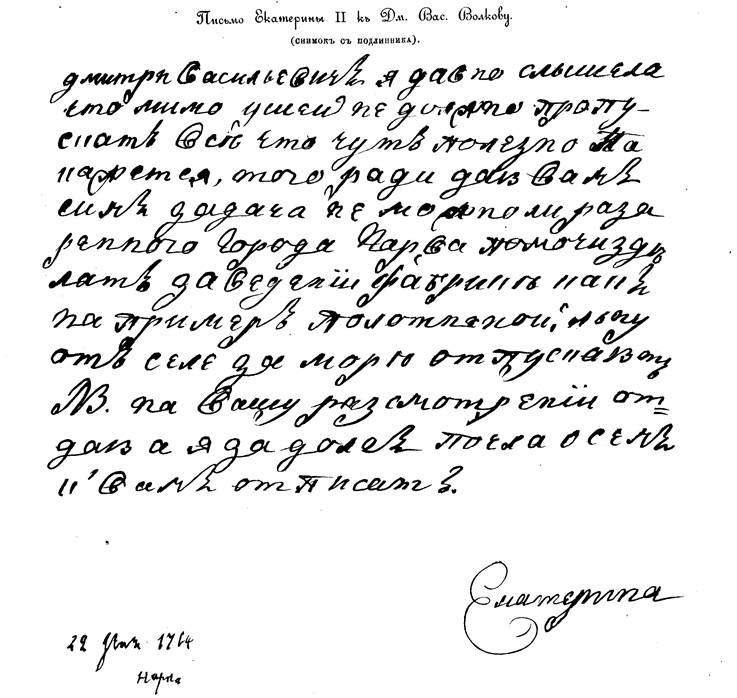 Письмо Екатерины II къ Дм. Вас. Волкову.
(снимокъ съ подлинника).
дмитри Васильевичъ я давно слышела
что мимо ушей не должно пропу-
скать всю что чуть полезно па
кажется, того ради даю Вамъ
симъ задача не можноли раза
реннаго города Нарва помочи здѣ
лать заведении фабрикъ какъ
на примеръ полотняной, льну
отъ селе за морю отпускают
NB. на Вашу разсмотрении от=
даю а я за долгъ почла о семъ
к Вамъ отписатъ.
Екатерина
22 1764
Нарва